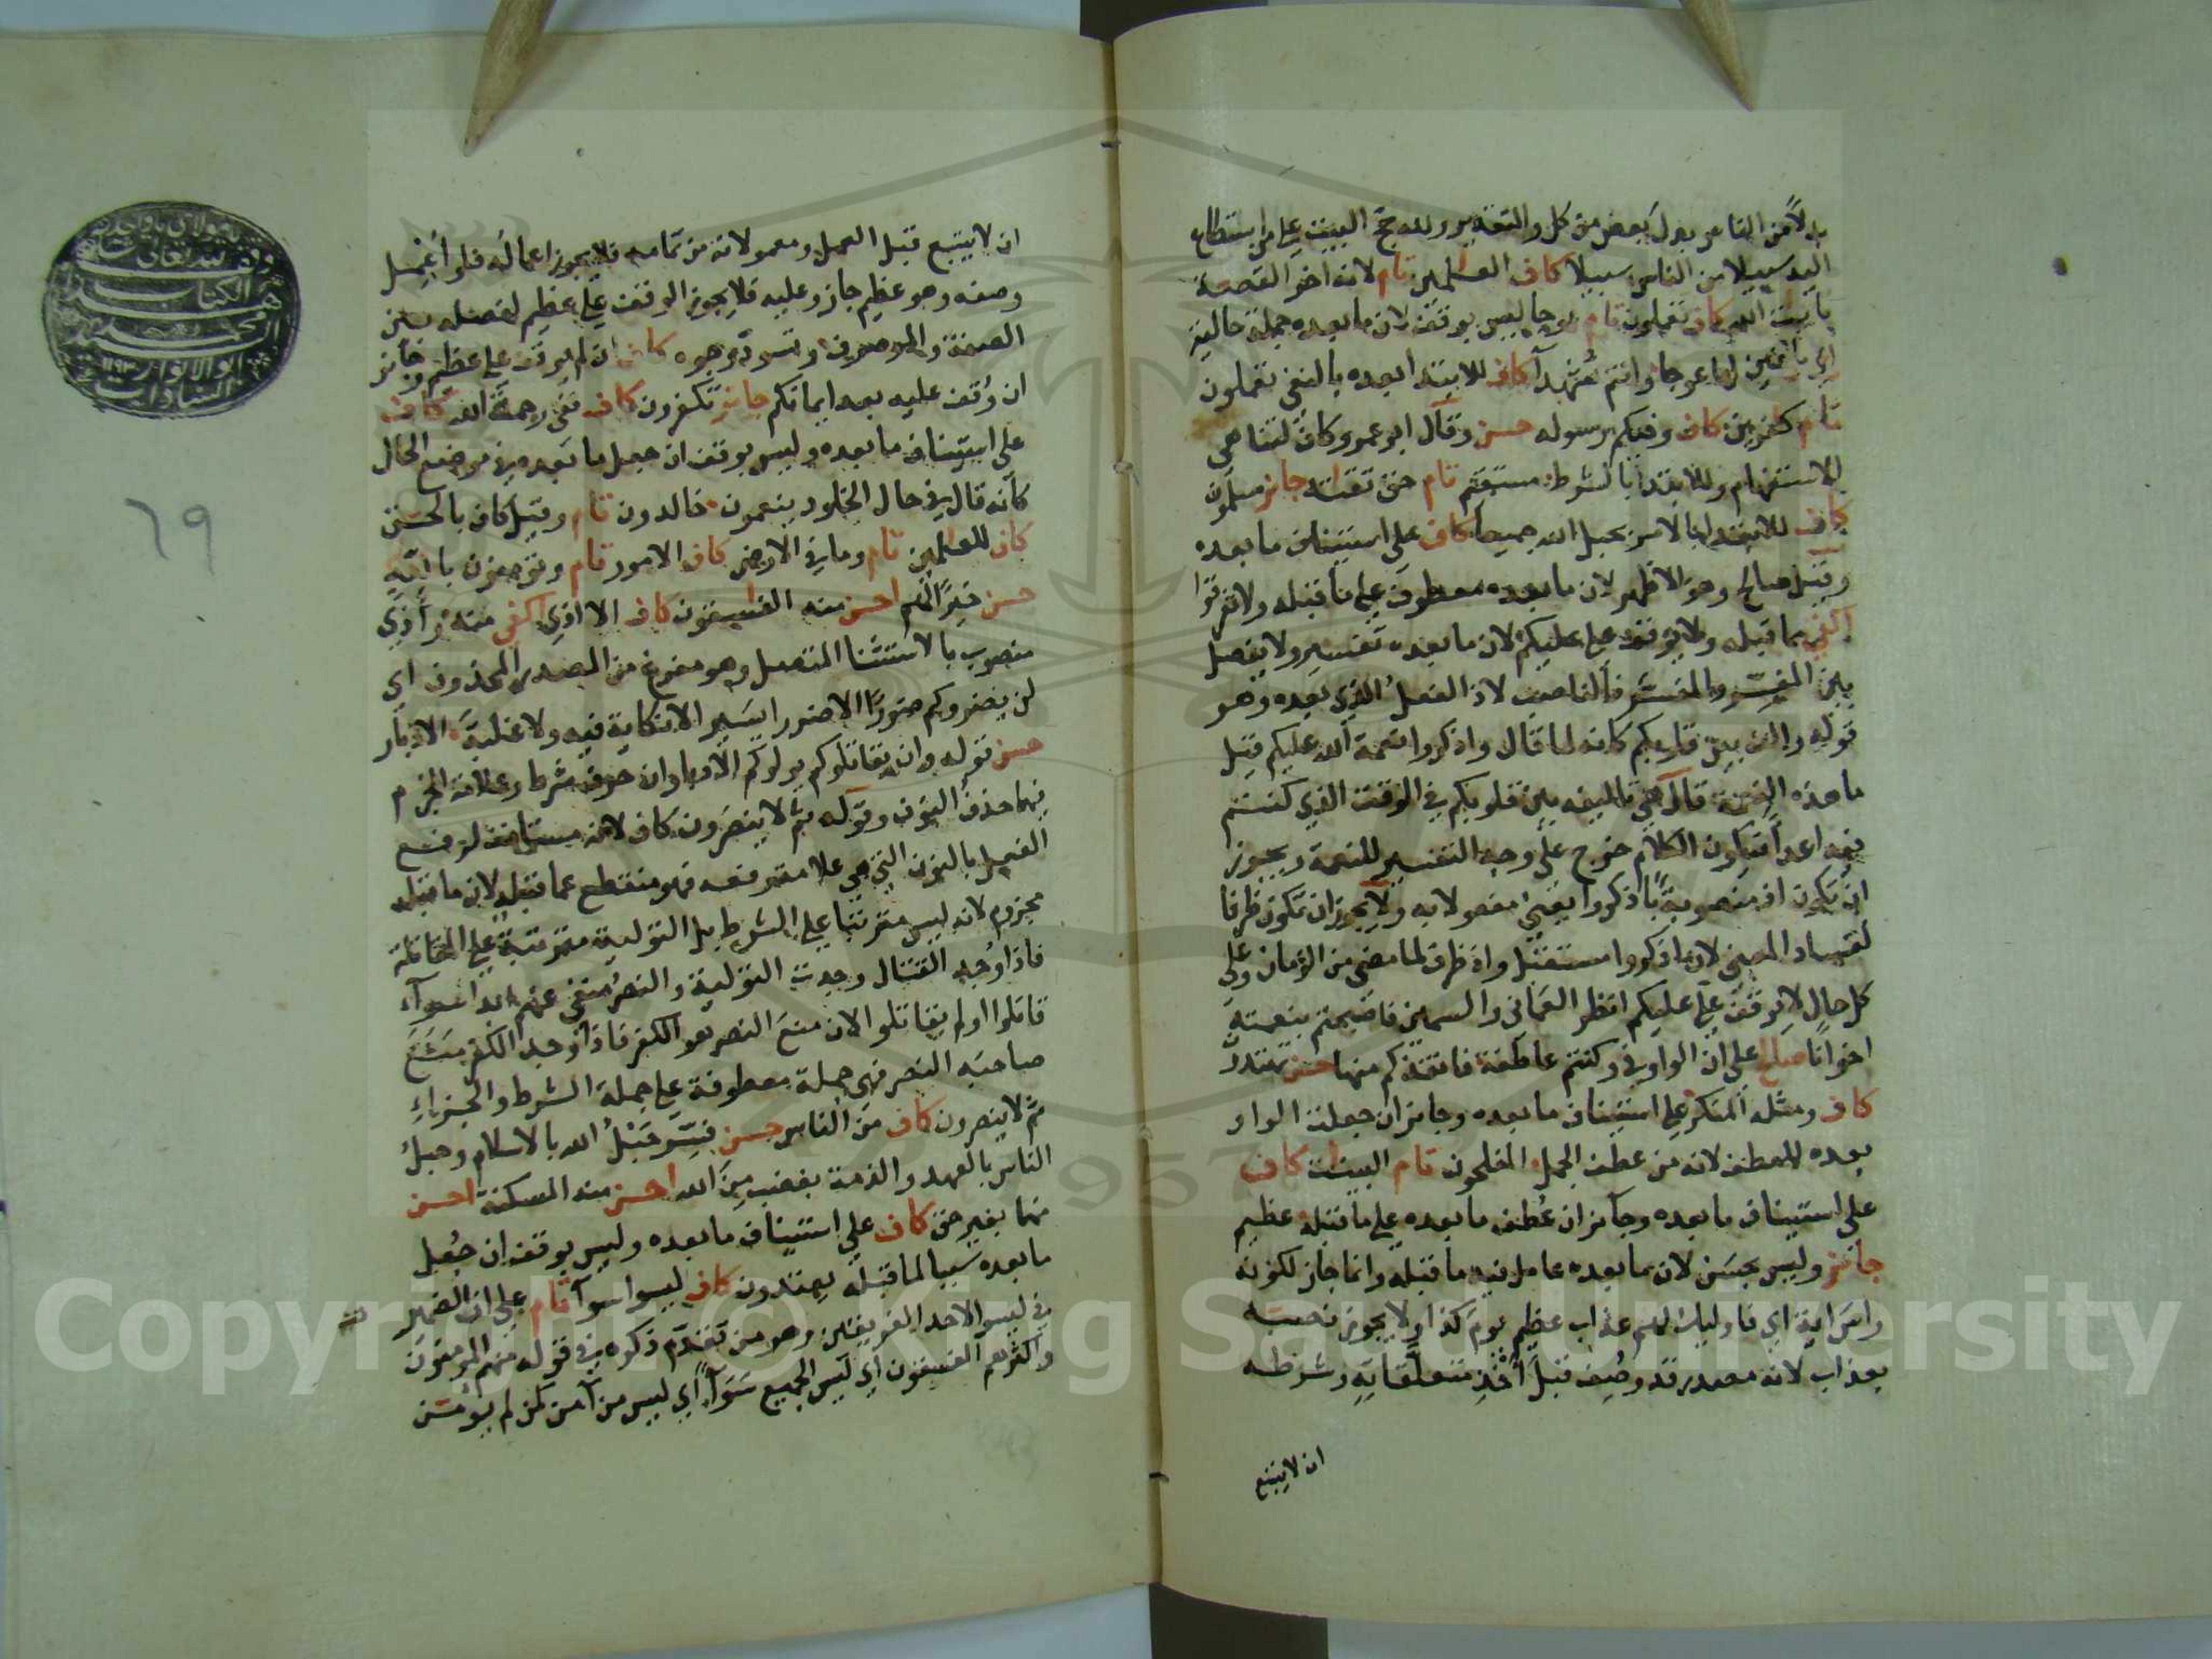 بدلاً من الناس بدل بعض من كل والتقدير ولله حج البيت على من استطاع
اليه سبيلا من الناس سبيلا كاف العلمين تام لانه اخر القصة
بايت الله كاف تعملون تام عوجا ليس بوقف لان ما بعده جملة حالية
اي باغين لها عوجا وانتم شهدآ كاف للابتدا بعده بالنفي تعملون
تام كفرين كاف وفيكم رسوله حسن وقال ابو عمرو كاف لتناهي
الاستفهام وللابتدا بالشرط مستقيم تام حق تقاته جائز مسلمون
كاف للابتدا بالامر بحبل الله جميعا كاف على استيناف ما بعده
وقيل صالح وهو الاظهر لان ما بعده معطوف على ما قبله ولا تفرقوا
اكفى مما قبله ولا يوقف على عليكم لان ما بعده تفسير ولا يفصل
بين المفسر والمفسر فالناصب لاذ الفعل الذي بعده وهو
قوله فالف بين قلوبكم كانه لما قال واذكروا نعمة الله عليكم قيل
ما هذه النعمة قال هي تاليفه بين قلوبكم في الوقت الذي كنتم
فيه اعدآ فيكون الكلام خرج على وجه التفسير للنعمة ويجوز
ان تكون اذ منصوبة باذكروا يعني مفعولا به ولا يجوز ان تكون ظرفا
لفساد المعنى لان اذكروا مستقبل واذ ظرف لما مضى من الزمان وعلى
كل حال لا يوقف على عليكم انظر العماني والسمين فاصبحتم بنعمته
اخوانا صالح على ان الواو في وكنتم عاطفة فانقذكم منها حسن تهتدون
كاف ومثله المنكر على استيناف ما بعده وجائز ان جعلت الواو
بعده للعطف لانه من عطف الجمل المفلحون تام البينت كاف
على استيناف ما بعده وجائز ان عُطف ما بعده على ما قبله عظيم
جائز وليس بحسن لان ما بعده عامل فيه ما قبله وانما جاز لكونه
راس اية اي فاوليك لهم عذاب عظيم يوم كذا ولا يجوز نصبه
بعذاب لانه مصدر قد وصف قبل اخذ متعلقاته وشرطه
ان لا يتبع
ان لا يتبع قبل العمل ومعمولاته من تمامه فلا يجوز اعماله فلو اعمل
وصفه وهو عظيم جاز وعليه فلا يجوز الوقف على عظيم لفصله بين
الصفة والموصوف وتسود وجوه كاف ان لم يوقف على عظيم وجائز
ان وُقف عليه بعد ايمانكم جائز تكفرون كاف ففى رحمة الله كاف
على استيناف ما بعده وليس بوقف ان جعل ما بعده في موضع الحال
كانه قال في حال الخلود ينعمون خالدون تام وقيل كاف بالحسن
كاف للعلمين تام وما في الارض كاف الامور تام وتؤمنون بالله
حسن خيرا لهم احسن منه الفسقون كاف الا اذى اكفى منه واذى
منصوب بالاستثنا المتصل وهو مفرغ من المصدر المحذوف اي
لن يضروكم ضررا الا ضررا يسيرا لا نكاية فيه ولا غلبة الادبار
حسن قوله وان يقاتلوكم يولوكم الادبار وان حرف شرط وعلامة الجزم
فيهما حذف النون وقوله ثم لا ينصرون كاف لانه مستانف لرفع
الفعل بالنون التي هي علامة رفعه فهو منقطع عما قبله لان ما قبله
مجزوم لانه ليس مترتبا على الشرط بل التولية مترتبة على المقاتلة
فاذا وجد القتال وجدت التولية والنصر منفي عنهم ابدا سوآء
قاتلوا او لم يقاتلوا لان منع النصر هو الكفر فاذا وجد الكفر منع
صاحبه النصر فهي جملة معطوفة على جملة الشرط والجزاء
ثم لا ينصرون كاف من الناس حسن فسر حبل الله بالاسلام وحبل
الناس بالعهد والذمة بغضب من الله احسن منه المسكنة احسن
منهما بغير حق كاف على استيناف ما بعده وليس بوقف ان جعل
ما بعده سببا لما قبله يعتدون كاف ليسوا سوآ تام على ان الضمير
في ليسوا لاحد الفريقين وهو من تقدم ذكره في قوله منهم المؤمنون
واكثرهم الفسقون اي ليس الجميع سوآء اي ليس من آمن كمن لم يؤمن
وقف لله تعالى
الكتاب
محمد
٦٩
Copyright © King Saud University
1957